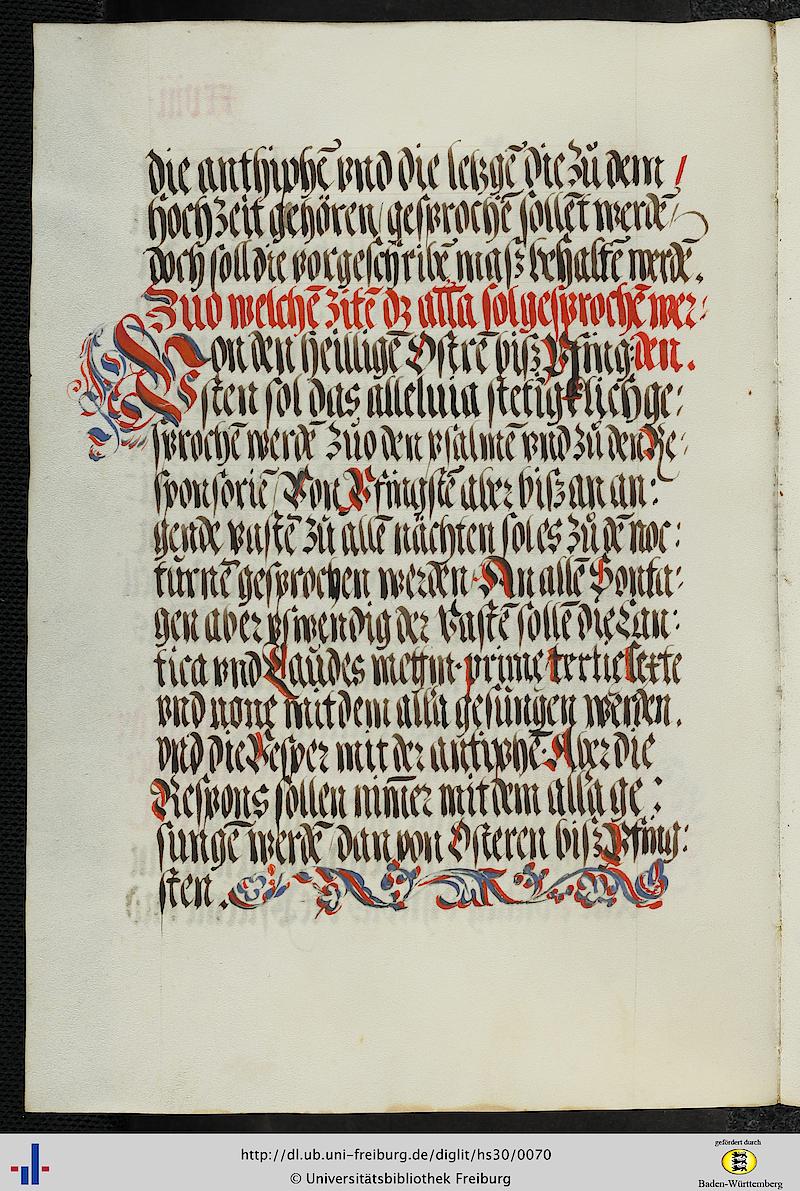 die anthiphē vnd die letzgē die zů dem /
hochzeit gehören / gesprochē sollēt werdē /
doch soll die vorgeschribē masz behaltē werdē.
Zuo welchē zitē dz alla sol gesprochē wer:
Von den heilligē Ostrē bisz Pfing: den.
sten sol das alleluia stetigklich ge:
sprochē werdē zuo den psalmē vnd zů den Re:
sponsoriē Von Pfingstē aber bisz an an:
gende vastē zů allē nächten sol es zů dē noc:
turnē gesprochen werden. An allē Sonta:
gen aber vswendig der Vastē sollē die Can:
tica vnd Laudes mettin. prime tertie sexte
vnd none mit dem alla gesungen werden.
vnd die Vesper mit der antiphē. Aber die
Respons sollen nim̄er mit dem alla ge:
sungē werdē dan von Osteren bisz Pfing:
sten.
http://dl.ub.uni-freiburg.de/diglit/hs30/0070
© Universitätsbibliothek Freiburg
gefördert durch
Baden-Württemberg